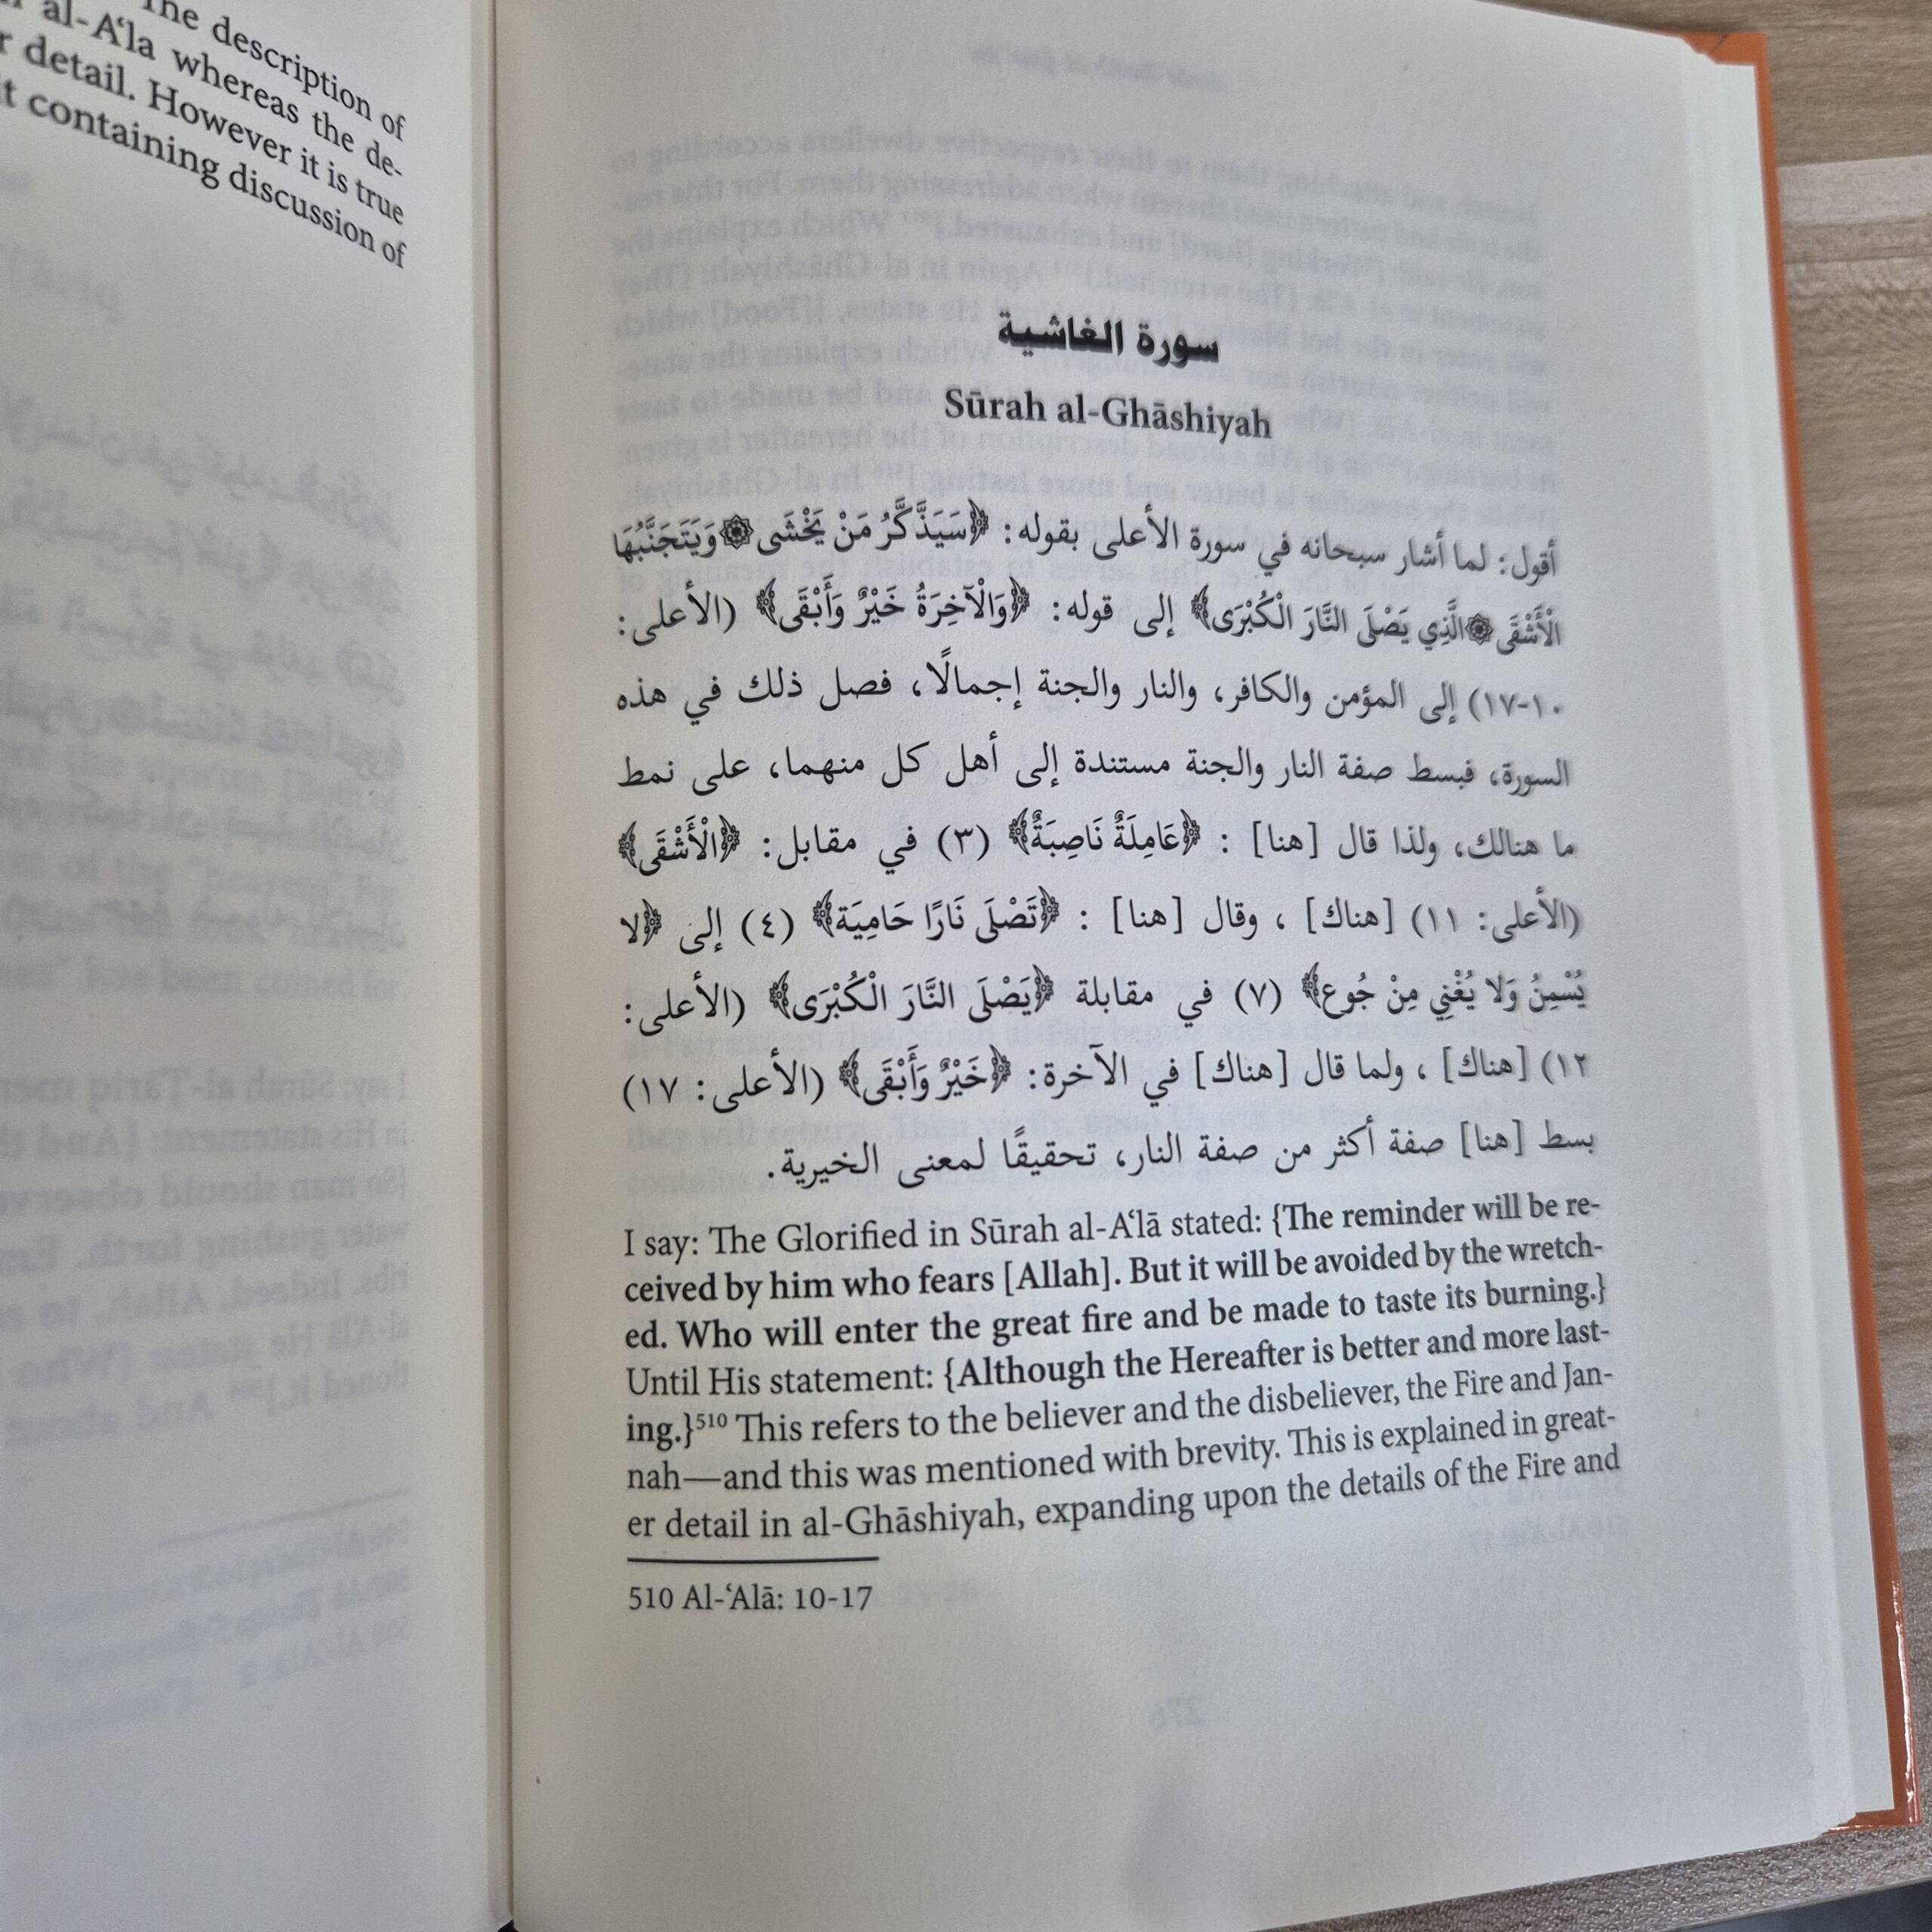 The description of
al-A‘la whereas the de-
detail. However it is true
containing discussion of
سورة الغاشية
Sūrah al-Ghāshiyah
أقول: لما أشار سبحانه في سورة الأعلى بقوله: ﴿سَيَذَّكَّرُ مَنْ يَخْشَى۞وَيَتَجَنَّبُهَا
الْأَشْقَى۞الَّذِي يَصْلَى النَّارَ الْكُبْرَى﴾ إلى قوله: ﴿وَالْآخِرَةُ خَيْرٌ وَأَبْقَى﴾ (الأعلى:
١٠-١٧) إلى المؤمن والكافر، والنار والجنة إجمالًا، فصل ذلك في هذه
السورة، فبسط صفة النار والجنة مستندة إلى أهل كل منهما، على نمط
ما هنالك، ولذا قال [هنا] : ﴿عَامِلَةٌ نَاصِبَةٌ﴾ (٣) في مقابل: ﴿الْأَشْقَى﴾
(الأعلى: ١١) [هناك] ، وقال [هنا] : ﴿تَصْلَى نَارًا حَامِيَة﴾ (٤) إلى ﴿لا
يُسْمِنُ وَلا يُغْنِي مِنْ جُوع﴾ (٧) في مقابلة ﴿يَصْلَى النَّارَ الْكُبْرَى﴾ (الأعلى:
١٢) [هناك] ، ولما قال [هناك] في الآخرة: ﴿خَيْرٌ وَأَبْقَى﴾ (الأعلى: ١٧)
بسط [هنا] صفة أكثر من صفة النار، تحقيقًا لمعنى الخيرية.
I say: The Glorified in Sūrah al-A‘lā stated: {The reminder will be re-
ceived by him who fears [Allah]. But it will be avoided by the wretch-
ed. Who will enter the great fire and be made to taste its burning.}
Until His statement: {Although the Hereafter is better and more last-
ing.}⁵¹⁰ This refers to the believer and the disbeliever, the Fire and Jan-
nah—and this was mentioned with brevity. This is explained in great-
er detail in al-Ghāshiyah, expanding upon the details of the Fire and
510 Al-‘Alā: 10-17